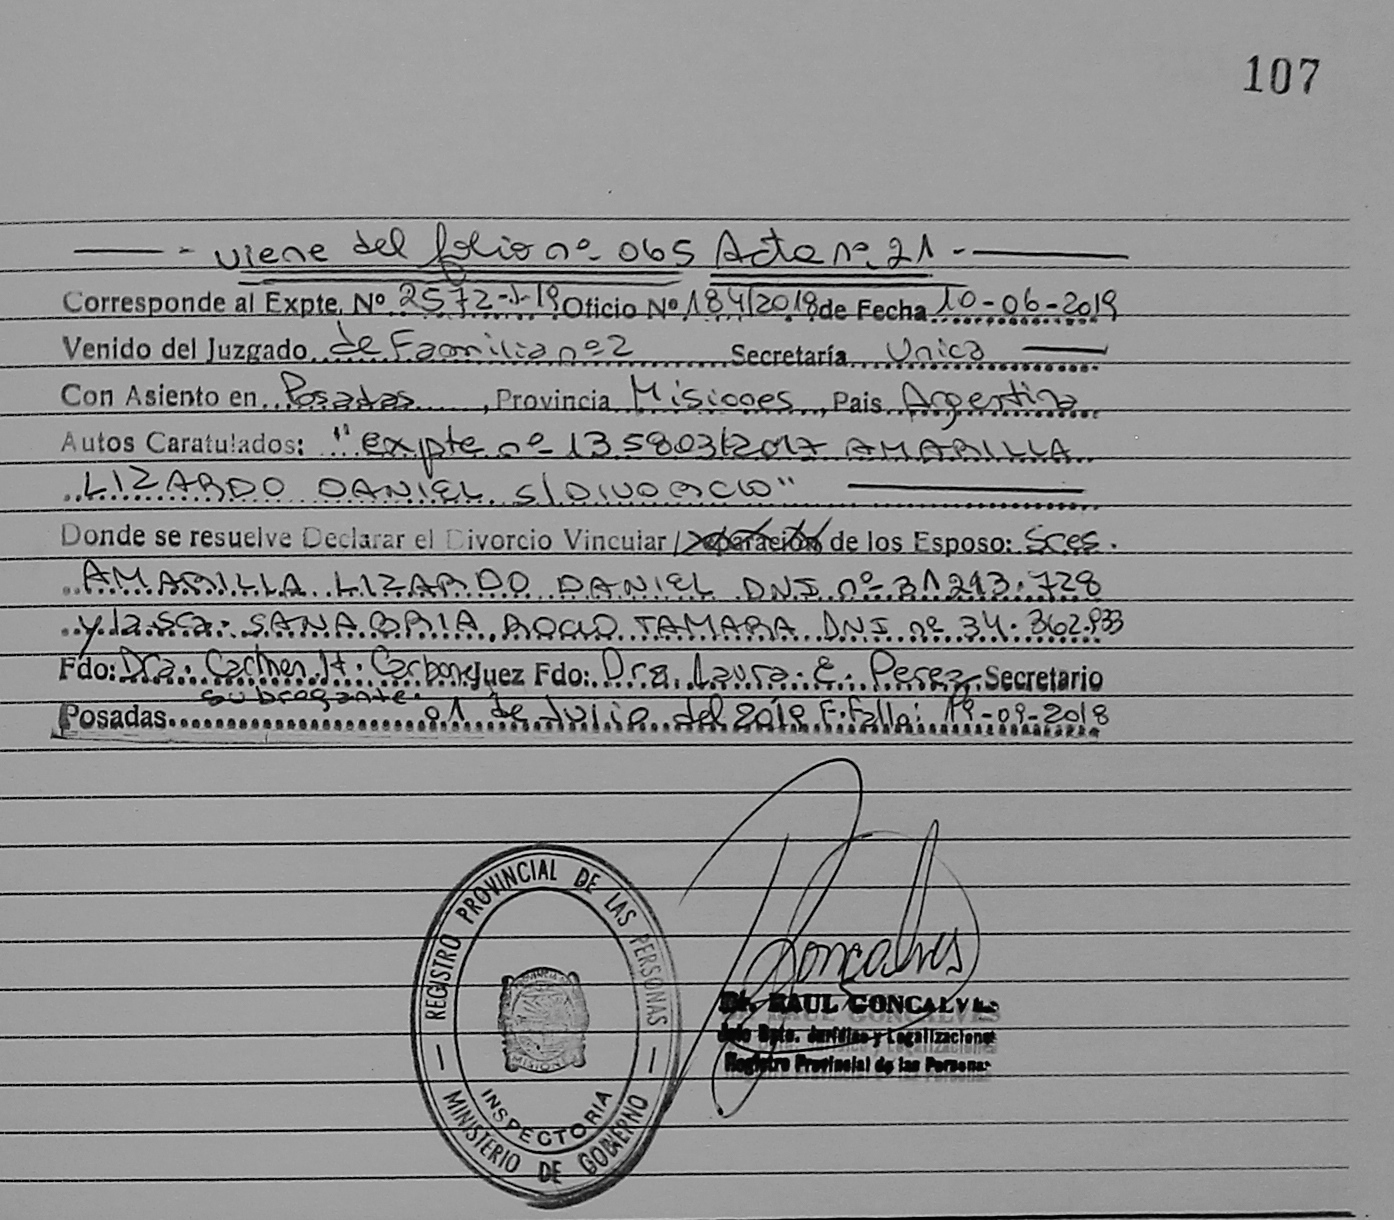 107
viene del folio nº 065 Acta nº 21
Corresponde al Expte. Nº 2572-J-19 Oficio Nº 184/2019 de Fecha 10-06-2019
Venido del Juzgado de Familia nº 2 Secretaría Unica
Con Asiento en Posadas, Provincia Misiones, Pais Argentina
Autos Caratulados: "expte nº 135803/2017 AMARILLA
LIZARDO DANIEL S/DIVORCIO"
Donde se resuelve Declarar el Divorcio Vincular / Separación de los Esposo: Sres.
AMARILLA LIZARDO DANIEL DNI nº 31.213.728
y la sra. SANABRIA ROCIO TAMARA DNI nº 34.362.933
Fdo: Dra. Carmen H. Carbone Juez Fdo: Dra. Laura E. Perez Secretario
subrogante.
Posadas 01 de Julio del 2019 F. Fallo: 19-09-2018
REGISTRO PROVINCIAL DE LAS PERSONAS
INSPECTORIA
MINISTERIO DE GOBIERNO
Goncalves
Dr. RAUL GONCALVES
Jefe Dpto. Jurídico y Legalizaciones
Registro Provincial de las Personas